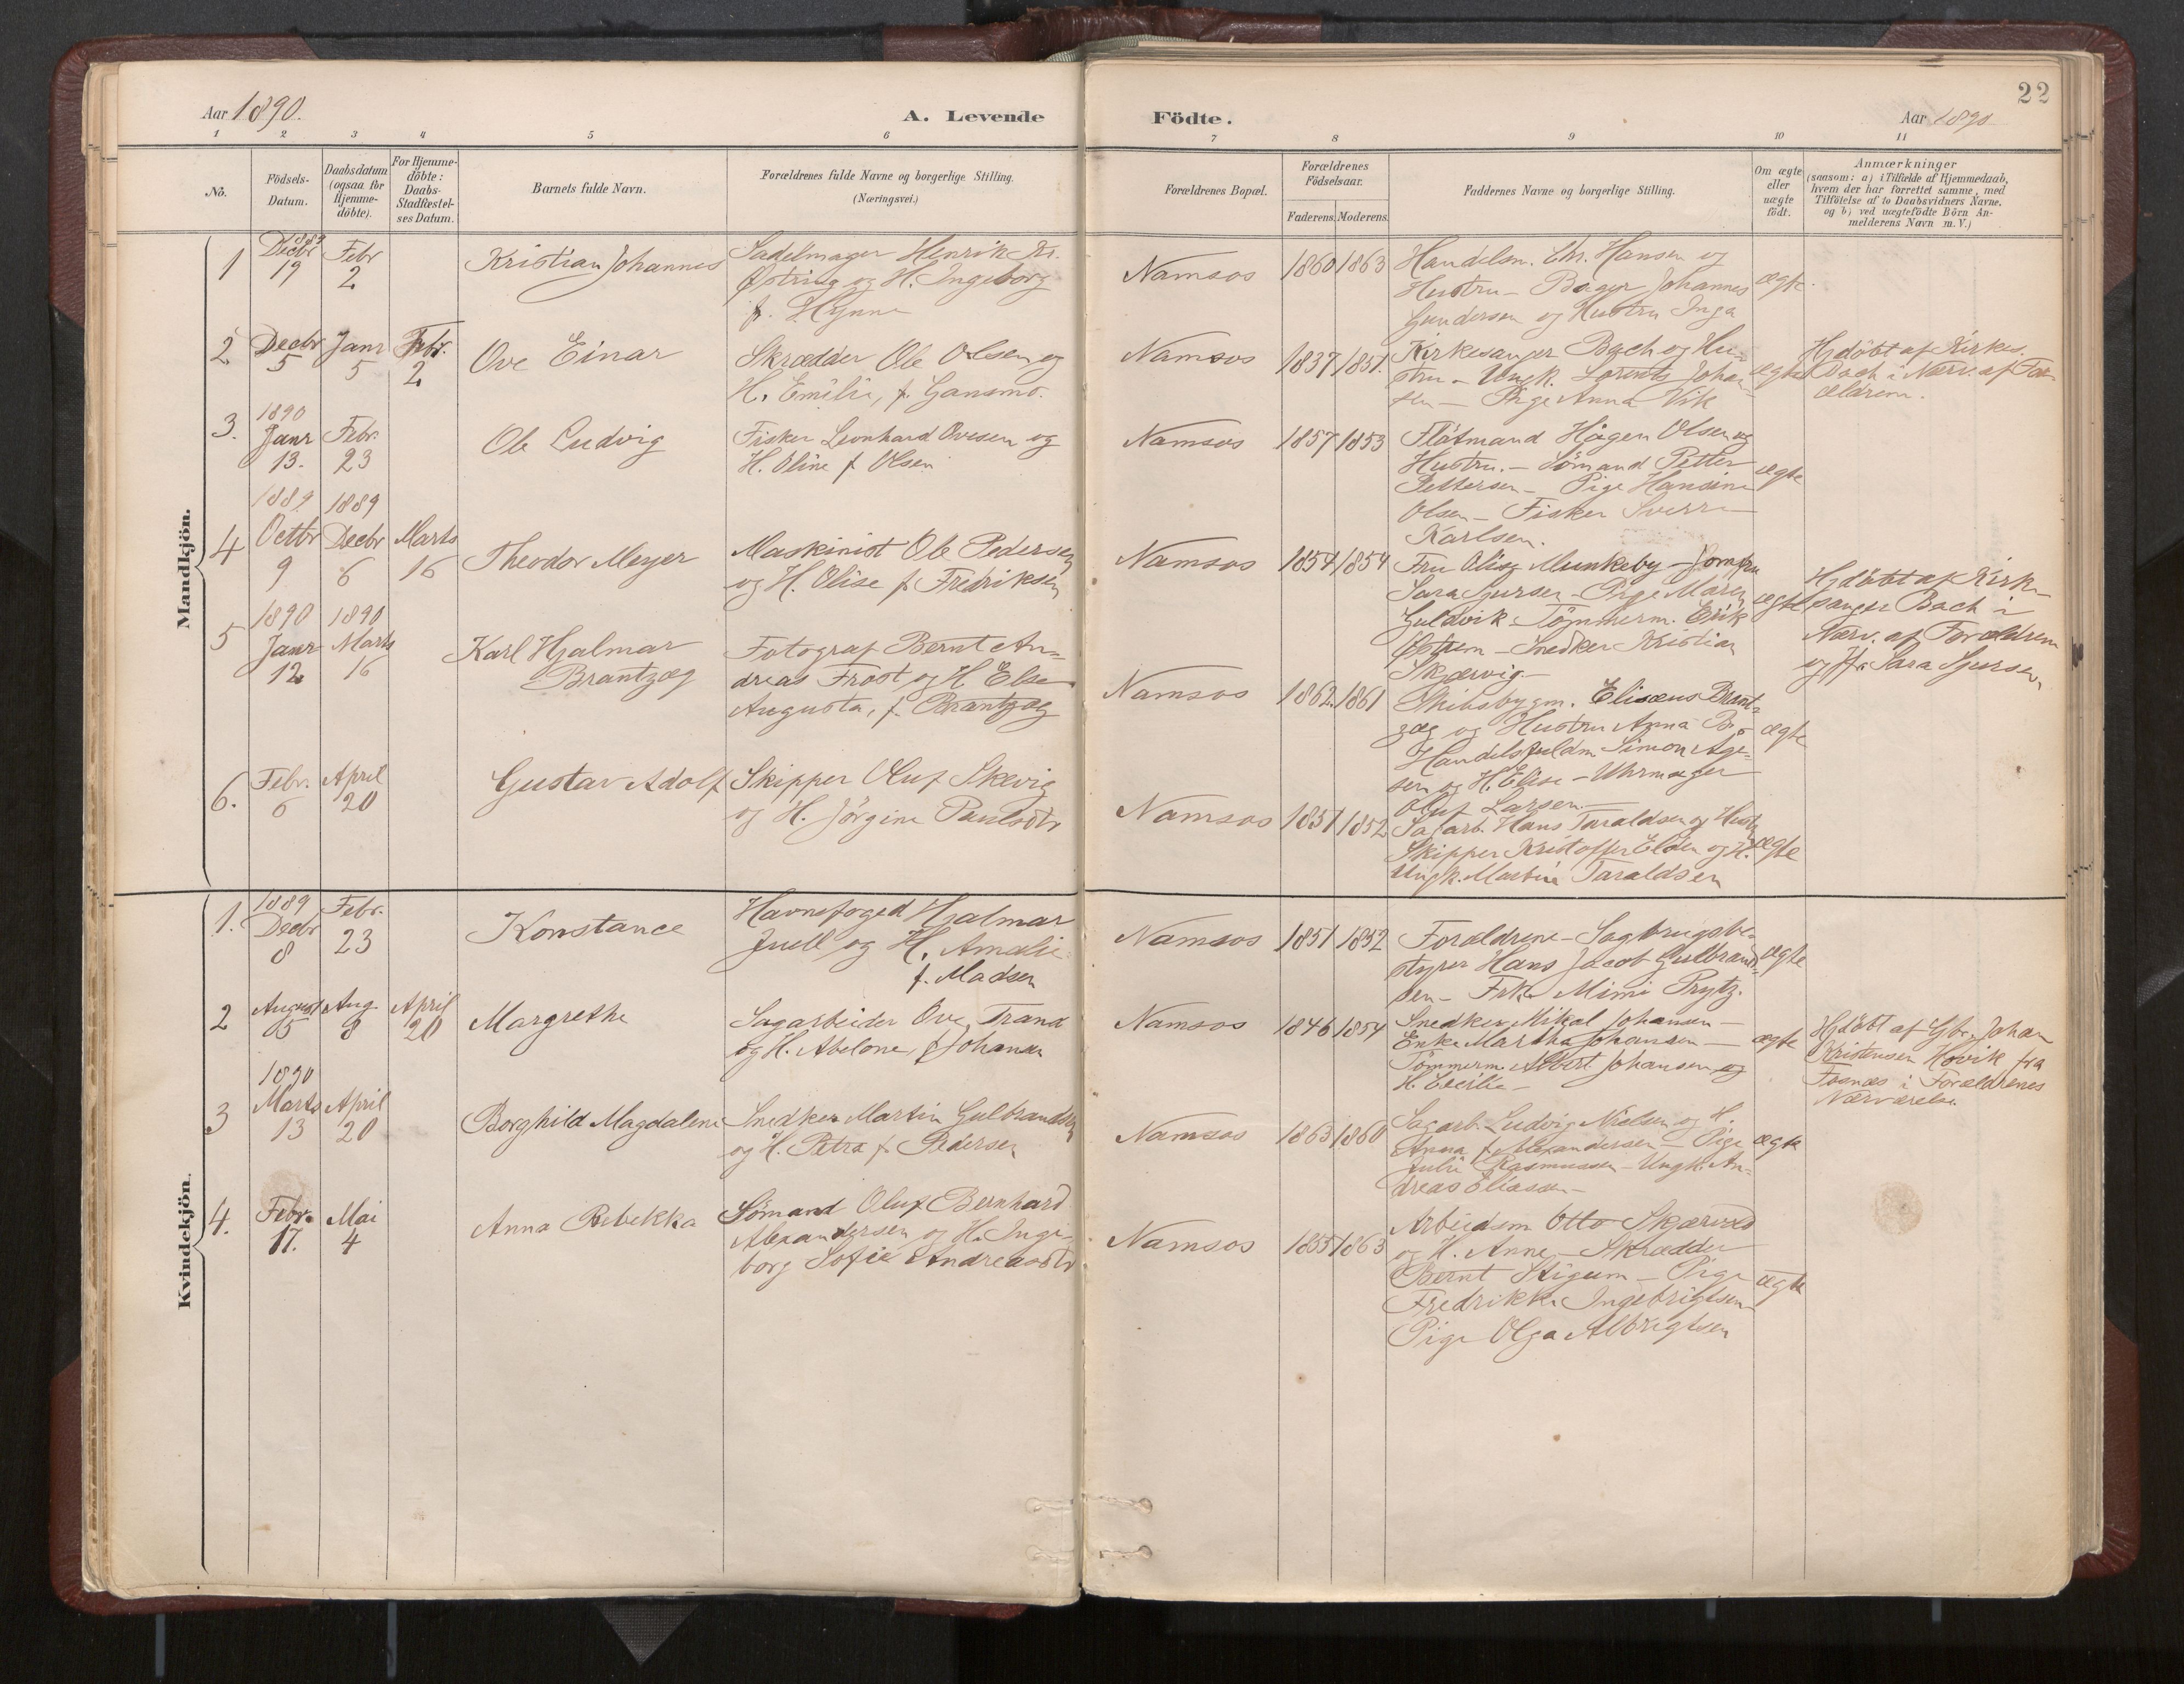 22
Aar 1890.
A. Levende
Födte.
Aar 1890
1 2 3 4 5 6 7 8 9 10 11
No.
Födsels-
Datum.
Daabsdatum
(ogsaa for
Hjemme-
döbte).
For Hjemme-
döbte:
Daabs-
Stadfestel-
ses Datum.
Barnets fulde Navn.
Forældrenes fulde Navne og borgerlige Stilling.
(Næringsvei.)
Forældrenes Bopæl.
Forældrenes
Födselsaar.
Faderens. Moderens.
Faddernes Navne og borgerlige Stilling.
Om ægte
eller
uægte
födt.
Anmærkninger
(saasom: a) i Tilfælde af Hjemmedaab,
hvem der har forrettet samme, med
Tilföielse af to Daabsvidners Navne,
og b) ved uægtefödte Börn An-
melderens Navn m. V.)
Mandkjön.
1
1889
Decbr
19
Febr
2
Kristian Johannes
Sadelmager Henrik Kr.
Østring og H. Ingeborg
f. Hynne
Namsos
1860 1863
Handelsm. Chr. Hansen og
Hustru - Bager Johannes
Gundersen og Hustru Inga
ægte.
2
Decbr
5
Janr
5
Febr.
2
Ove Einar
Skrædder Ole Olsen og
H. Emilie, f. Gansmo.
Namsos
1837 1851.
Kirkesanger Bach og Hu-
stru - Ungk. Lorents Johan-
sen - Pige Anna Vik
ægte
Hjdöbt af Kirkes.
Bach i Nærv. af For-
ældrene.
3.
1890
Janr
13.
Febr.
23
Ole Ludvig
Fisker Leonhard Ovesen og
H. Oline f Olsen
Namsos
1857 1853
Flötmand Hågen Olsen og
Hustru. - Sömand Petter
Pettersen - Pige Hansine
Olsen - Fisker Sverre
Karlsen.
ægte
4
1889
Octbr
9
1889
Decbr
6
Marts
16
Theodor Meyer
Maskinist Ole Pedersen
og H. Olise f Fredriksen
Namsos
1854 1854
Fru Olise Munkeby - Jomfru
Sara Sjursen - Pige Maren
Guldvik - Tömmerm. Erik
Östrem - Snedker Kristian
Skjærvig
ægte
Hjdöbt af Kirke-
sanger Bach i
Nærv. af Forældrene
og Jfr Sara Sjursen
5
1890
Janr
12
1890
Marts
16
Karl Hjalmar
Brantzæg
Fotograf Bernt An-
dreas Frost og H Else
Augusta, f. Brantzæg
Namsos
1862. 1861
Skibsbygm. Elisæus Brant-
zæg og Hustru Anna B.
Handelsfuldm Simon Age-
sen og H. Elise - Uhrmager
Oluf Larsen.
ægte
6.
Febr.
6
April
20
Gustav Adolf
Skipper Oluf Skevig
og H. Jörgine Paulsdtr
Namsos
1851 1852
Sagarb. Hans Taraldsen og Hustr
Skipper Kristoffer Elden og H.
Ungk. Martin Taraldsen
ægte
Kvindekjön.
1.
1889
Decbr
8
Febr.
23
Konstance
Havnefoged Hjalmar
Juell og H. Amalie
f. Madsen
Namsos
1851 1852
Forældrene - Sagbrugsbe-
styrer Hans Jacob Gulbrand-
sen - Frk. Mimi Prytz.
ægte
2
August
05
Aug
8
April
20
Margrethe
Sagarbeider Ove Trana
og H. Abelone, f Johansen
Namsos
1846 1854
Snedker Mikal Johansen -
Enke Martha Johansen -
Tömmerm Albert Johansen og
H. Cecilie -
ægte
Hjdöbt af Gbr. Johan
Kristensen Hovik fra
Fosnæs i Forældrenes
Nærværelse
3
1890
Marts
13
April
20
Borghild Magdalene
Snedker Martin Gulbrandsen
og H. Petra f Pedersen
Namsos
1863 1860
Sagarb. Ludvig Nielsen og H.
Anna f Alexandersen - Pige
Julie Rasmussen - Ungk. An-
dreas Eliassen -
ægte
4.
Febr.
17.
Mai
4
Anna Rebekka
Sömand Oluf Bernhard
Alexandersen og H. Inge-
borg Sofie Andreasdtr
Namsos
1855 1863
Arbeidsm Otto Skjærvold
og H. Anne - Skrædder
Bernt Stigum - Pige
Fredrikke Ingebrigtsen
Pige Olga Albrigtsen
ægte